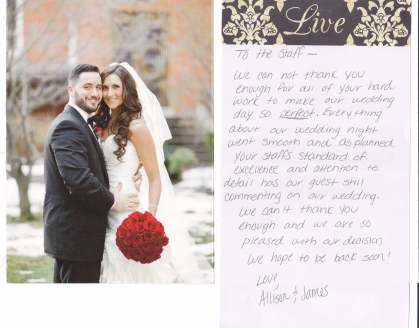 Live
To the Staff —
We can not thank you
enough for all of your hard
work to make our wedding
day so perfect. Everything
about our wedding night
went smooth and as planned.
Your staff's standard of
excellence and attention to
detail has our guest still
commenting on our wedding.
We can't thank you
enough and we are so
pleased with our decision.
We hope to be back soon!
Love,
Allison & James